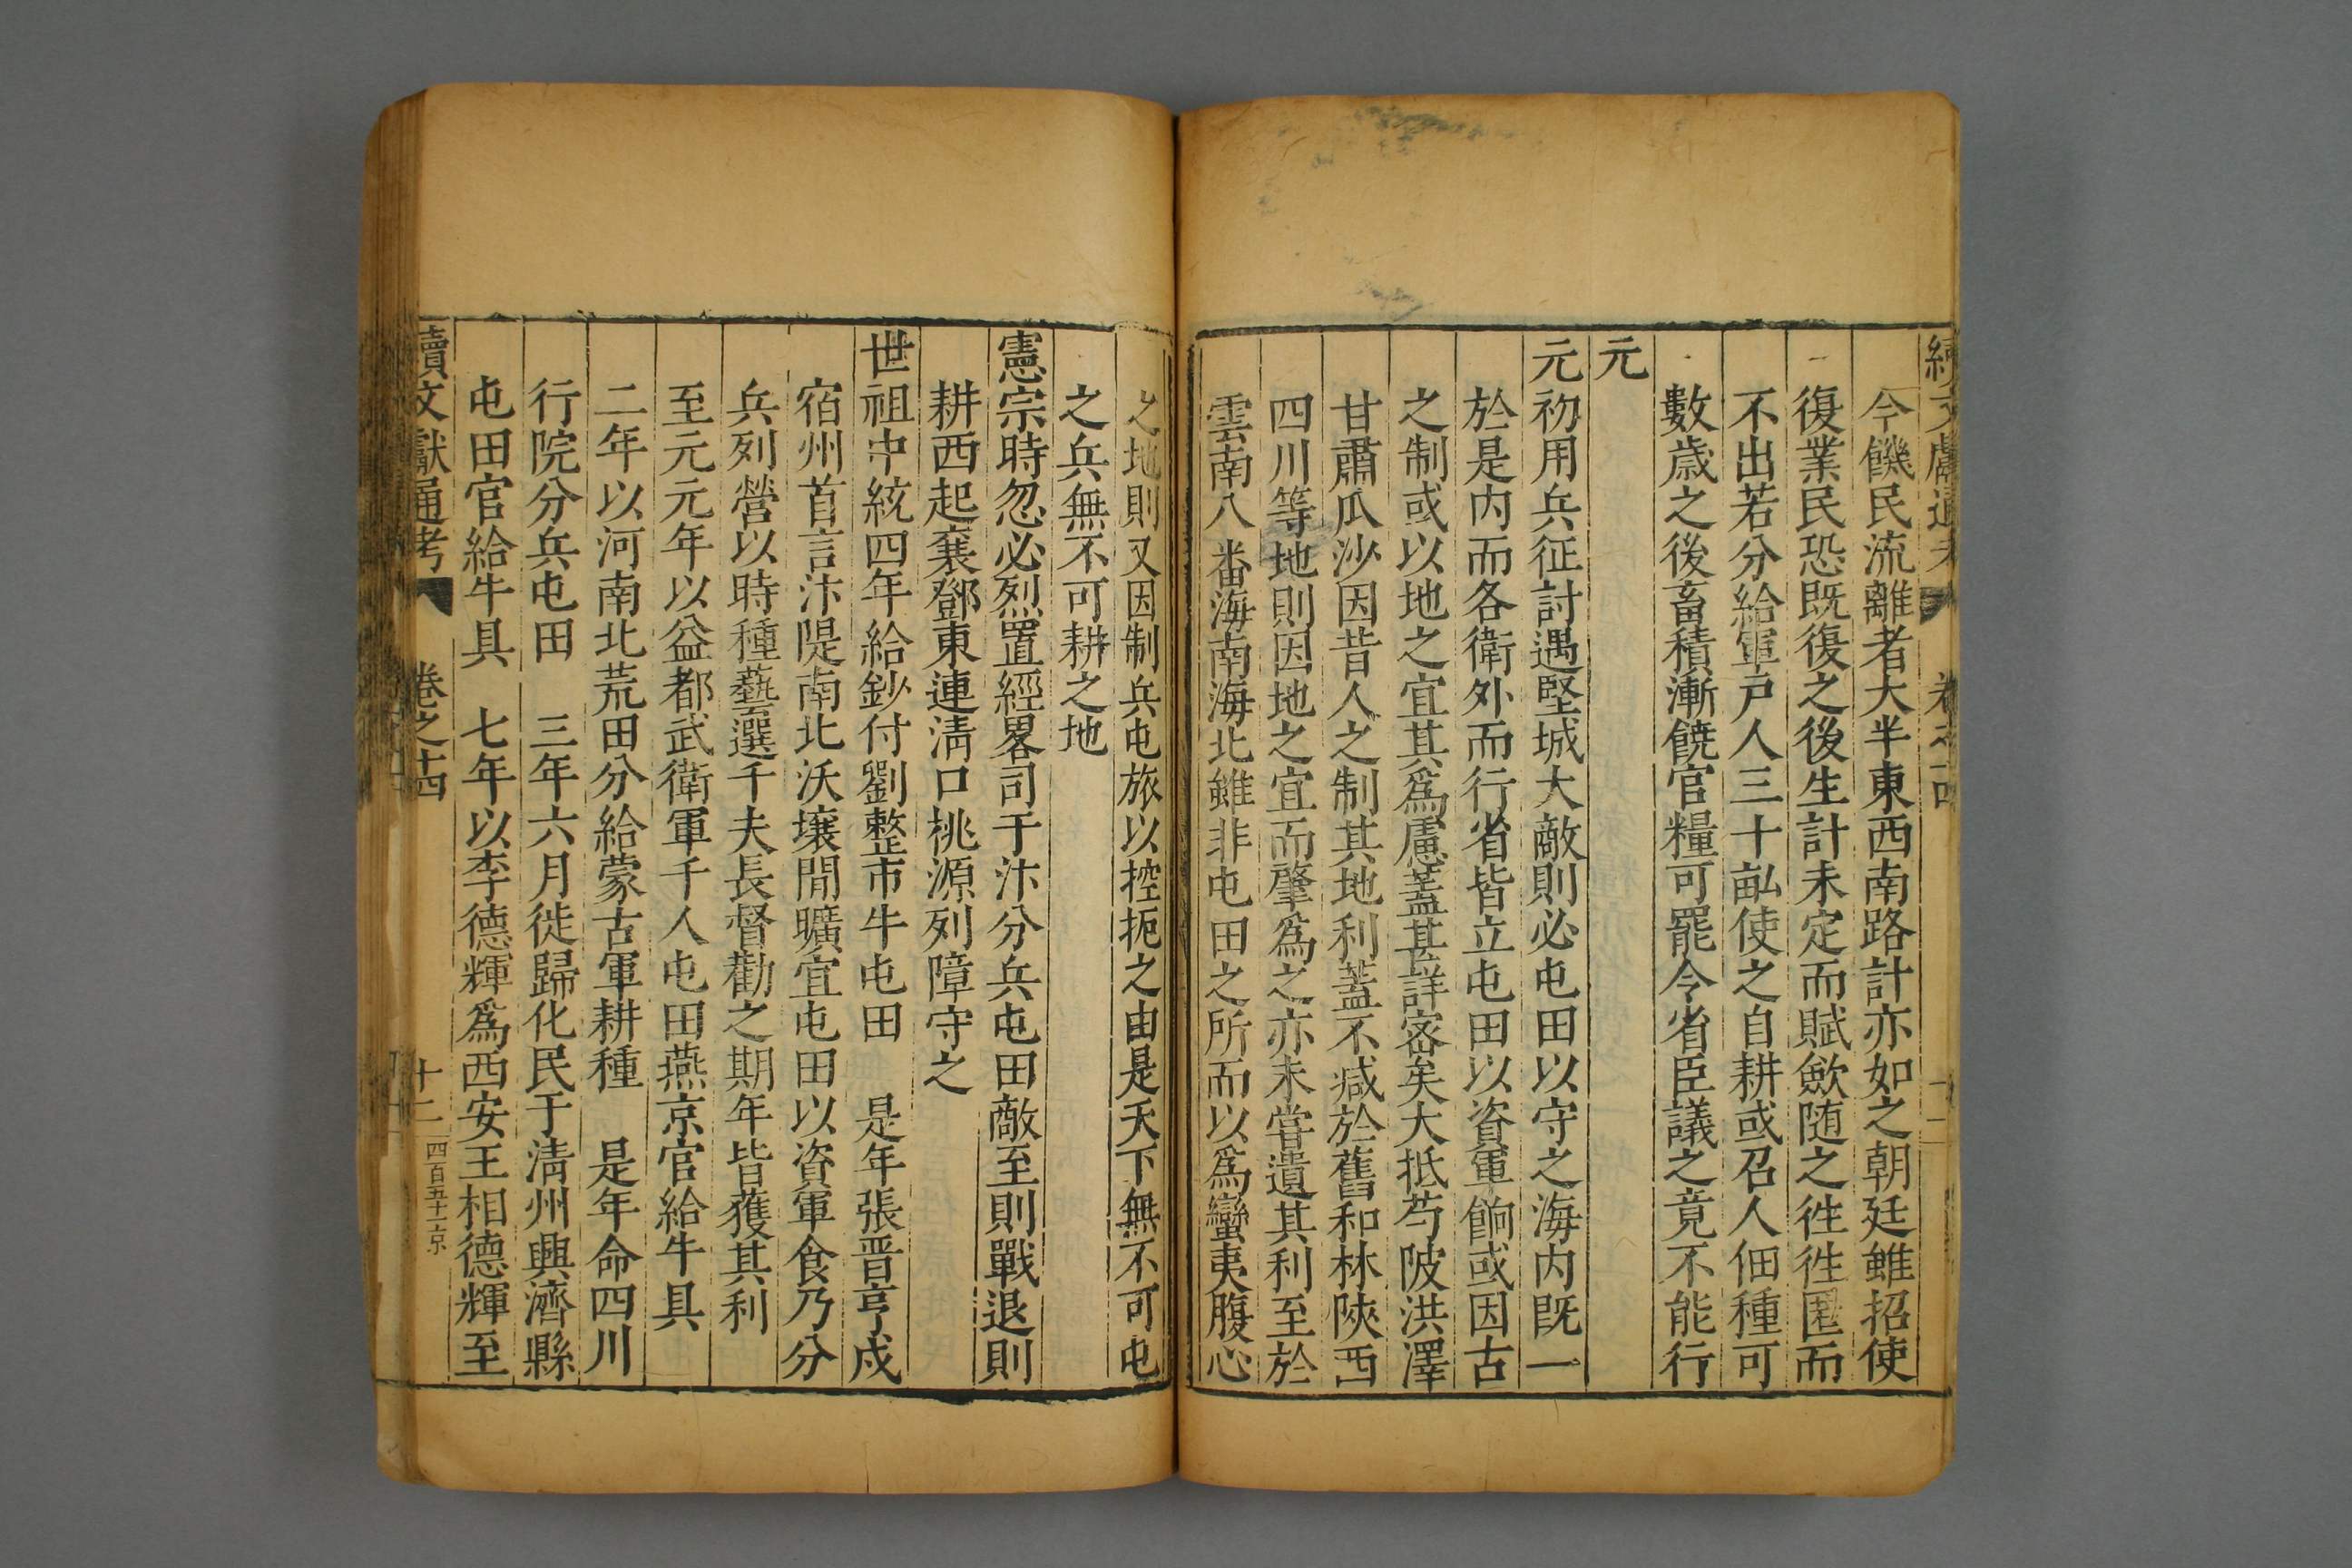 續文獻通考 卷之十四
今饑民流離者大半東西南路計亦如之朝廷雖招使
復業民恐既復之後生計未定而賦歛随之徃徃匿而
不出若分給軍户人三十畆使之自耕或召人佃種可
數歲之後畜積漸饒官糧可罷令省臣議之竟不能行
元
元初用兵征討遇堅城大敵則必屯田以守之海内既一
於是内而各衛外而行省皆立屯田以資軍餉或因古
之制或以地之宜其爲慮蓋甚詳宻矣大抵芍陂洪澤
甘肅瓜沙因昔人之制其地利蓋不减於舊和林陜西
四川等地則因地之宜而肇爲之亦未甞遺其利至於
雲南八番海南海北雖非屯田之所而以爲蠻夷腹心
之地則又因制兵屯旅以控扼之由是天下無不可屯
之兵無不可耕之地
憲宗時忽必烈置經畧司于汴分兵屯田敵至則戰退則
耕西起襄鄧東連清口桃源列障守之
世祖中統四年給鈔付劉整市牛屯田 是年張晋亨戍
宿州首言汴隄南北沃壤閒曠宜屯田以資軍食乃分
兵列營以時種藝選千夫長督勸之期年皆獲其利
至元元年以益都武衛軍千人屯田燕京官給牛具
二年以河南北荒田分給蒙古軍耕種 是年命四川
行院分兵屯田 三年六月徙歸化民于清州興濟縣
屯田官給牛具 七年以李德輝爲西安王相德輝至
續文獻通考 卷之十四 十二